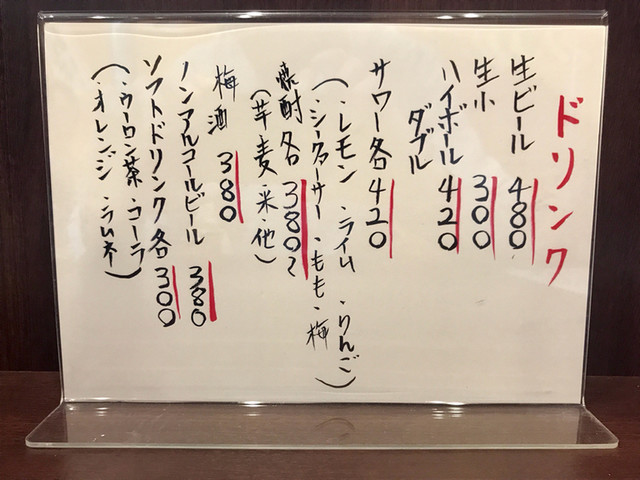 ドリンク
生ビール 480
生小 300
ハイボール 420
ダブル
サワー各 420
(・レモン・ライム・りんご
・シークァーサー・もも・梅)
焼酎各 380〜
(芋 麦 米 他)
梅酒 380
ノンアルコールビール 380
ソフトドリンク各 300
(・ウーロン茶・コーラ
・オレンジ・ラムネ)